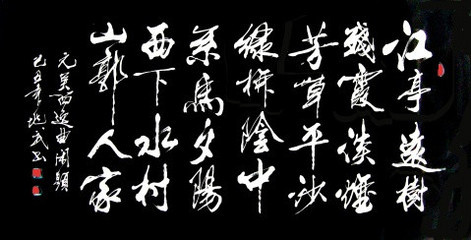 江亭遠樹
殘霞淡煙
芳草平沙
綠柳陰中
系馬夕陽
西下水村
山郭人家
元吳西逸曲閑題
己丑年武書